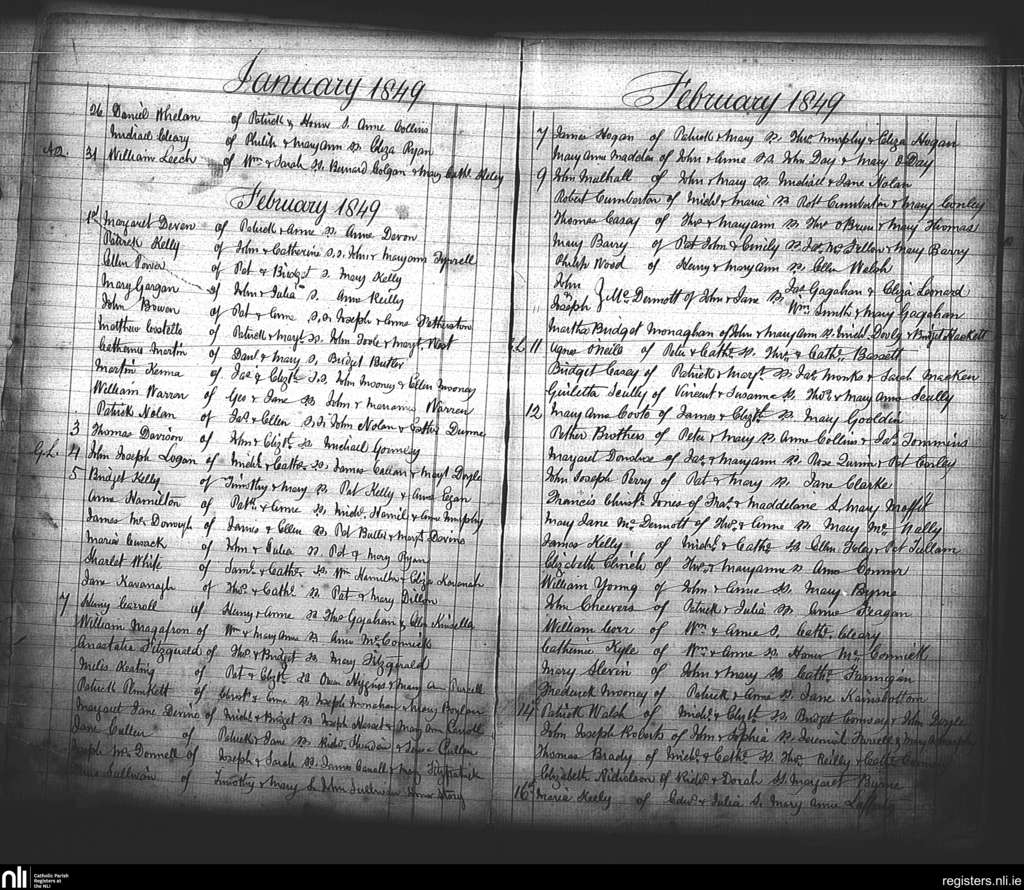 January 1849
26 Daniel Whelan of Patrick & Honor S. Anne Collins
Michael Cleary of Philip & Mary Ann Ss Eliza Ryan
31 William Leech of Wm & Sarah Ss Bernard Colgan & Mary Cathe.
February 1849
1st Margaret Devon of Patrick & Anne Ss Anne Devon
Patrick Kelly of John & Catherine S.S. John & Maryann Tyrrell
Ellen Power of Pat & Bridget S. Mary Kelly
Mary Gargan of John & Julia S. Anne Reilly
John Bowen of Pat & Anne S.s Joseph & Anne
Matthew Costello of Patrick & Margt. Ss. John Toole & Margt. West
Catherine Martin of Danl & Mary S. Bridget Butler
Martin Kenna of Jas & Elizth S.s John Mooney & Ellen Mooney
William Warren of Geo & Jane Ss John & Marianne Warren
Patrick Nolan of Jas & Ellen S.s John Nolan & Esther Dunne
3 Thomas Davison of John & Elizth. Ss Michael
G.L. 4 John Joseph Logan of Michl. & Cathe. Ss. James Callan & Margt Doyle
5 Bridget Kelly of Timothy & Mary Ss Pat Kelly & Anne Egan
Anne Hamilton of Patk. & Anne Ss Michl. Hamil & Anne Murphy
James McDonogh of James & Ellen Ss Pat Butler & Margt Devine
Maria Cusack of John & Julia Ss Pat & Mary Ryan
Charlot White of Jams. & Cathe. Ss. Wm Hamilton & Eliza Kavanah
Jane Kavanagh of Thos & Cathe. Ss Pat & Mary Dillon
7 Henry Carroll of Henry & Anne Ss Thos Gagahan & Ellen Kinsella
William Magafron of Wm & Mary Anne Ss Anne McCormick
Anastatia Fitzgerald of Thos. & Bridget Ss. Mary Fitzgerald
Miles Keating of Pat & Elizth Ss Owen Higgins & Mary A Purcell
Patrick Plunkett of Christr. & Anne Ss Joseph Monahan & Mary Boylan
Margaret Jane Devine of Michl & Bridget Ss Joseph & Mary Ann Carroll
Jane Cullen of Patrick & Jane Ss Richd. & Jane Cullen
Joseph McDonnell of Joseph & Sarah Ss James Carroll & Mary Fitzpatrick
Sullivan of Timothy & Mary Ss John Sullivan
February 1849
7 James Hogan of Patrick & Mary Ss Thos Murphy & Eliza Hogan
Mary Anne Madden of John & Anne S.s John Day & Mary O Day
9 John Mulhall of John & Mary Ss Michael & Jane Nolan
Robert Cumberton of Michl & Maria Ss Robt Cumberton & Mary Conley
Thomas Casey of Thos & Maryann Ss Thos O Brien & Mary Thomas
Mary Barry of Pat John & Emily Ss Jas. & Mary Barry
Philip Wood of Henry & Mary Ann Ss Ellen Walsh
John & Joseph McDermott of John & Jane Ss Jas Gagahan & Eliza Leonard
Wm Smith & Mary Gagahan
Martha Bridget Monaghan of John & Mary Ann Ss Michl Dooly & Bridget Hackett
G.L. 11 Agnes O'Neile of Peter & Cathe. Ss. Thos. & Cathe. Bassett
Bridget Casey of Patrick & Margt. Ss Jas. Monks & Sarah Macken
Giulietta Scully of Vincent & Susanna Ss. Thos. & Mary Anne Scully
12 Mary Anne Coote of James & Elizth. Ss Mary Gooldin
Esther Brothers of Peter & Mary Ss Anne Collins & Jas. Tommins
Margaret Donohue of Jas. & Maryann Ss Rose Quinn & Pat Curley
John Joseph Perry of Pat & Mary Ss Jane Clarke
Francis Christr. Jones of Fras. & Maddelaine S. Mary Moffit
Mary Jane McDermott of Thos. & Anne Ss Mary McNally
James Kelly of Michl. & Cathe Ss Ellen Foley & Pat Tullam
Elizabeth Clinch of Thos. & Maryanne Ss Anne Connor
William Young of John & Anne Ss. Mary Byrne
John Cheevers of Patrick & Julia Ss Anne Reagan
William Corr of Wm & Anne S. Cathe. Cleary
Catherine Kyle of Wm. & Anne Ss Honor McCormick
Mary Slevin of John & Mary Ss Cathe. Flannigan
Frederick Mooney of Patrick & Anne Ss Jane Rainsbottom
14th Patrick Walsh of Michl. & Elizth. Ss Bridget Conway & John
John Joseph Roberts of John & Sophia Ss Jeremiah Farrell &
Thomas Brady of Michl. & Cathe. Ss. Thos. Reilly & Cathe.
Elizabeth Nicholson of Richd. & Dorah Ss. Margaret Byrne
16th Maria Keely of Edwd. & Julia S. Mary Anne
nli
Catholic Parish
Registers at
the NLI
registers.nli.ie